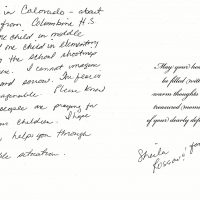 in Colorado - about
from Columbine H.S
me child in middle
d one child in elementary
n the school shootings
me. I cannot imagine
and sorrow. The fear is
aginable. Please know
people are praying for
ur children. I hope
help you through
ble situation.
May your hear
be filled with
warm thoughts
treasured momen
of your dearly dep
Sheila